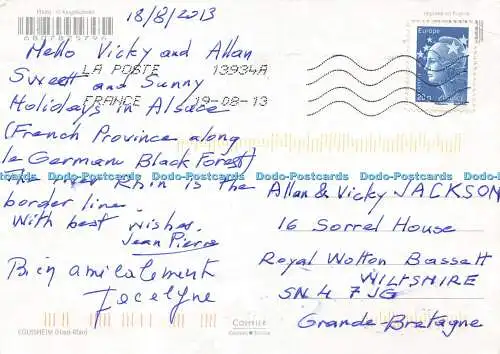 18/8/2013
6807825796
Europe
20g
Hello Vicky and Allan
LA POSTE 13934A
Sweet and Sunny
FRANCE 19-08-13
Holidays in Alsace
(French Province along
le German Black Forest)
The river Rhin is the
border line.
With best wishes.
Jean Pierre
Bien amicalement
Jocelyne
Allan & Vicky JACKSON
16 Sorrel House
Royal Wotton Bassett
WILTSHIRE
SN4 7JG
Grande-Bretagne
EGUISHEIM (Haut-Rhin)
Dodo-Postcards Dodo-Postcards Dodo-Postcards Dodo-Postcards